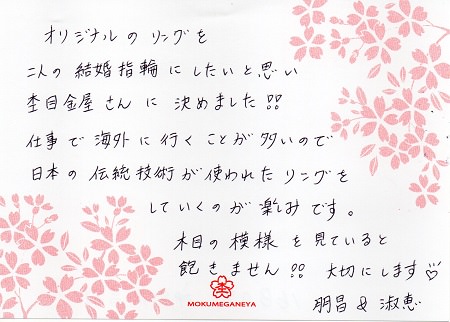 オリジナルの リングを
二人の 結婚指輪に したいと思い
杢目金屋さんに 決めました!!
仕事で 海外に行くことが多いので
日本の 伝統技術が使われたリングを
していくのが楽しみです。
木目の模様を見ていると
飽きません!! 大切にします♡
MOKUMEGANEYA
朋昌 & 淑恵